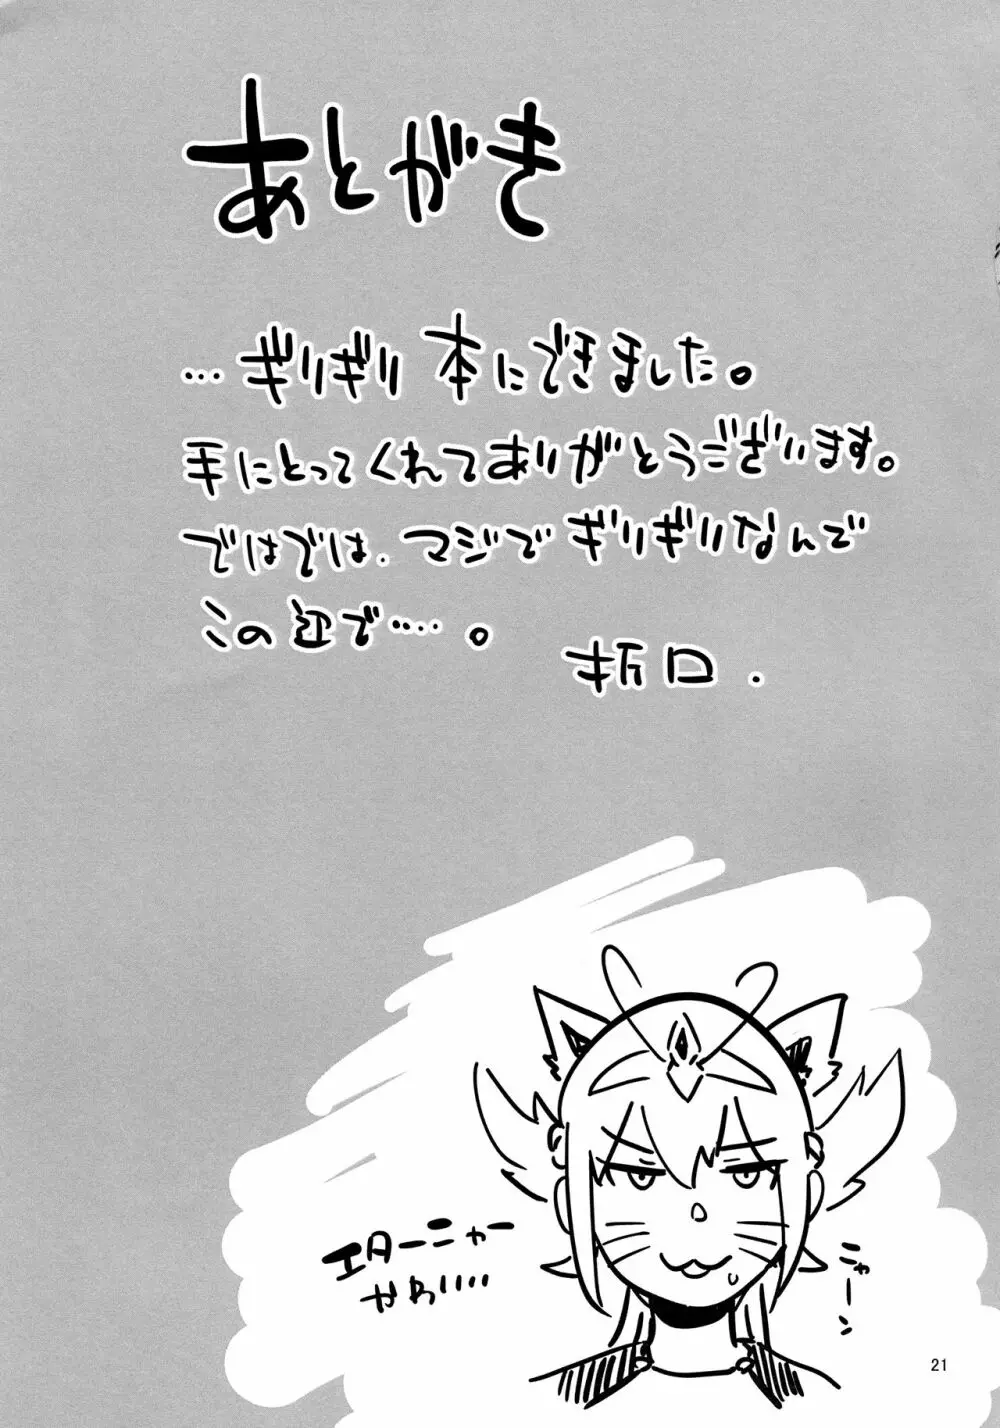 あとがき
…ギリギリ 本にできました。
手にとってくれてありがとうございます。
ではでは、マジでギリギリなんで
この辺で‥‥。
折口.
エターニャー
かわいい
ニャーン
21